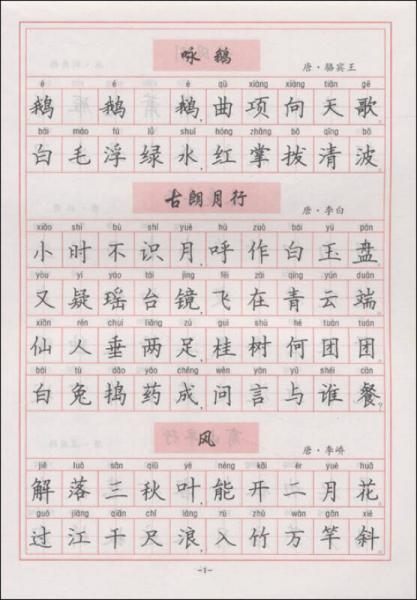 咏鹅
唐·骆宾王
é é é qū xiàng xiàng tiān gē
鹅，鹅，鹅，曲项向天歌。
bái máo fú lǜ shuǐ hóng zhǎng bō qīng bō
白毛浮绿水，红掌拨清波。
古朗月行
唐·李白
xiǎo shí bù shí yuè hū zuò bái yù pán
小时不识月，呼作白玉盘。
yòu yí yáo tái jìng fēi zài qīng yún duān
又疑瑶台镜，飞在青云端。
xiān rén chuí liǎng zú guì shù hé tuán tuán
仙人垂两足，桂树何团团。
bái tù dǎo yào chéng wèn yán yǔ shéi cān
白兔捣药成，问言与谁餐？
风
唐·李峤
jiě luò sān qiū yè néng kāi èr yuè huā
解落三秋叶，能开二月花。
guò jiāng qiān chǐ làng rù zhú wàn gān xié
过江千尺浪，入竹万竿斜。
-1-